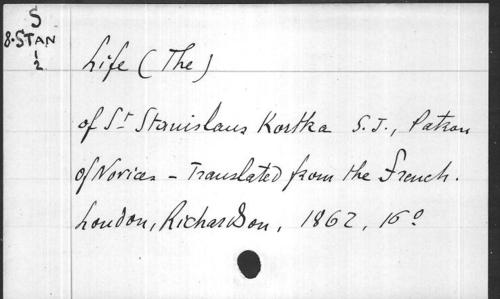 S
8·STAN
1
2
Life (The)
of St Stanislaus Kostka S.J., Patron
of Novices – Translated from the French.
London, Richardson, 1862, 16º